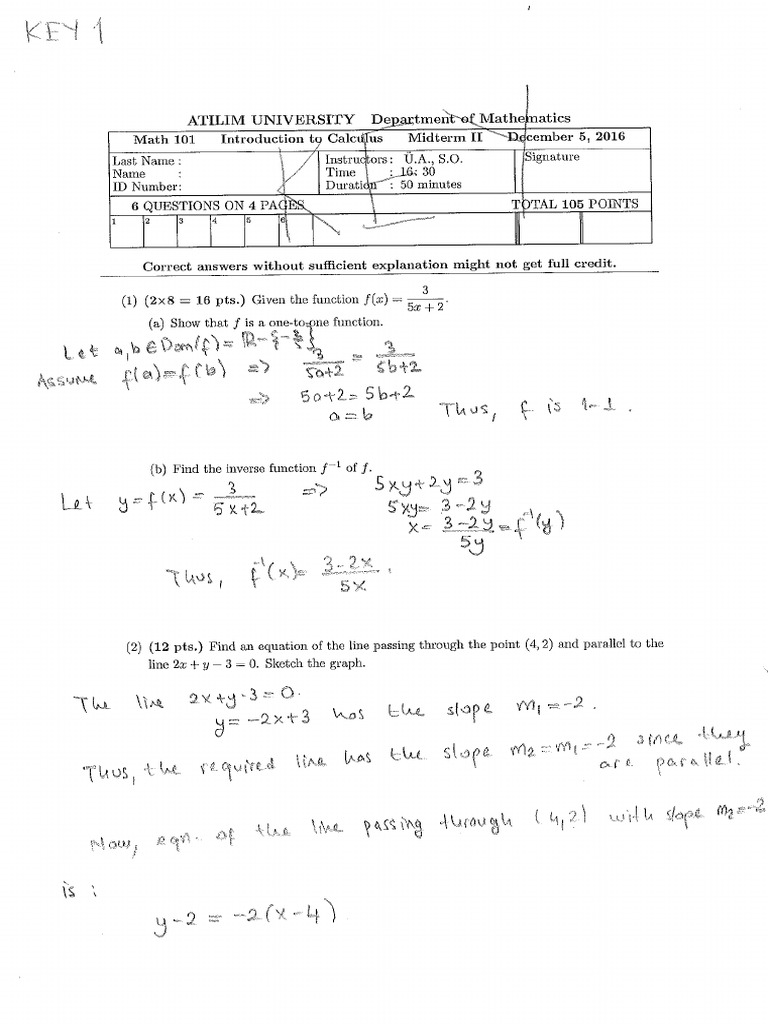 KEY 1
ATILIM UNIVERSITY Department of Mathematics
Math 101 Introduction to Calculus Midterm II December 5, 2016
Last Name : Instructors : Ü.A., S.O. Signature
Name : Time : 16: 30
ID Number: Duration : 50 minutes
6 QUESTIONS ON 4 PAGES TOTAL 105 POINTS
1 2 3 4 5 6
Correct answers without sufficient explanation might not get full credit.
(1) (2×8 = 16 pts.) Given the function f(x) = 3/(5x + 2).
(a) Show that f is a one-to-one function.
Let a,b ∈ Dom(f) = R-{-2/5}
Assume f(a)=f(b) => 3/(5a+2) = 3/(5b+2)
=> 5a+2 = 5b+2
a=b Thus, f is 1-1.
(b) Find the inverse function f⁻¹ of f.
Let y=f(x) = 3/(5x+2) => 5xy+2y=3
5xy= 3-2y
x= (3-2y)/5y = f⁻¹(y)
Thus, f⁻¹(x)= (3-2x)/5x.
(2) (12 pts.) Find an equation of the line passing through the point (4, 2) and parallel to the
line 2x + y − 3 = 0. Sketch the graph.
The line 2x+y-3=0.
y= -2x+3 has the slope m₁=-2.
Thus, the required line has the slope m₂=m₁=-2 since they
are parallel.
Now, eqn. of the line passing through (4,2) with slope m₂=-2
is :
y-2 = -2(x-4)